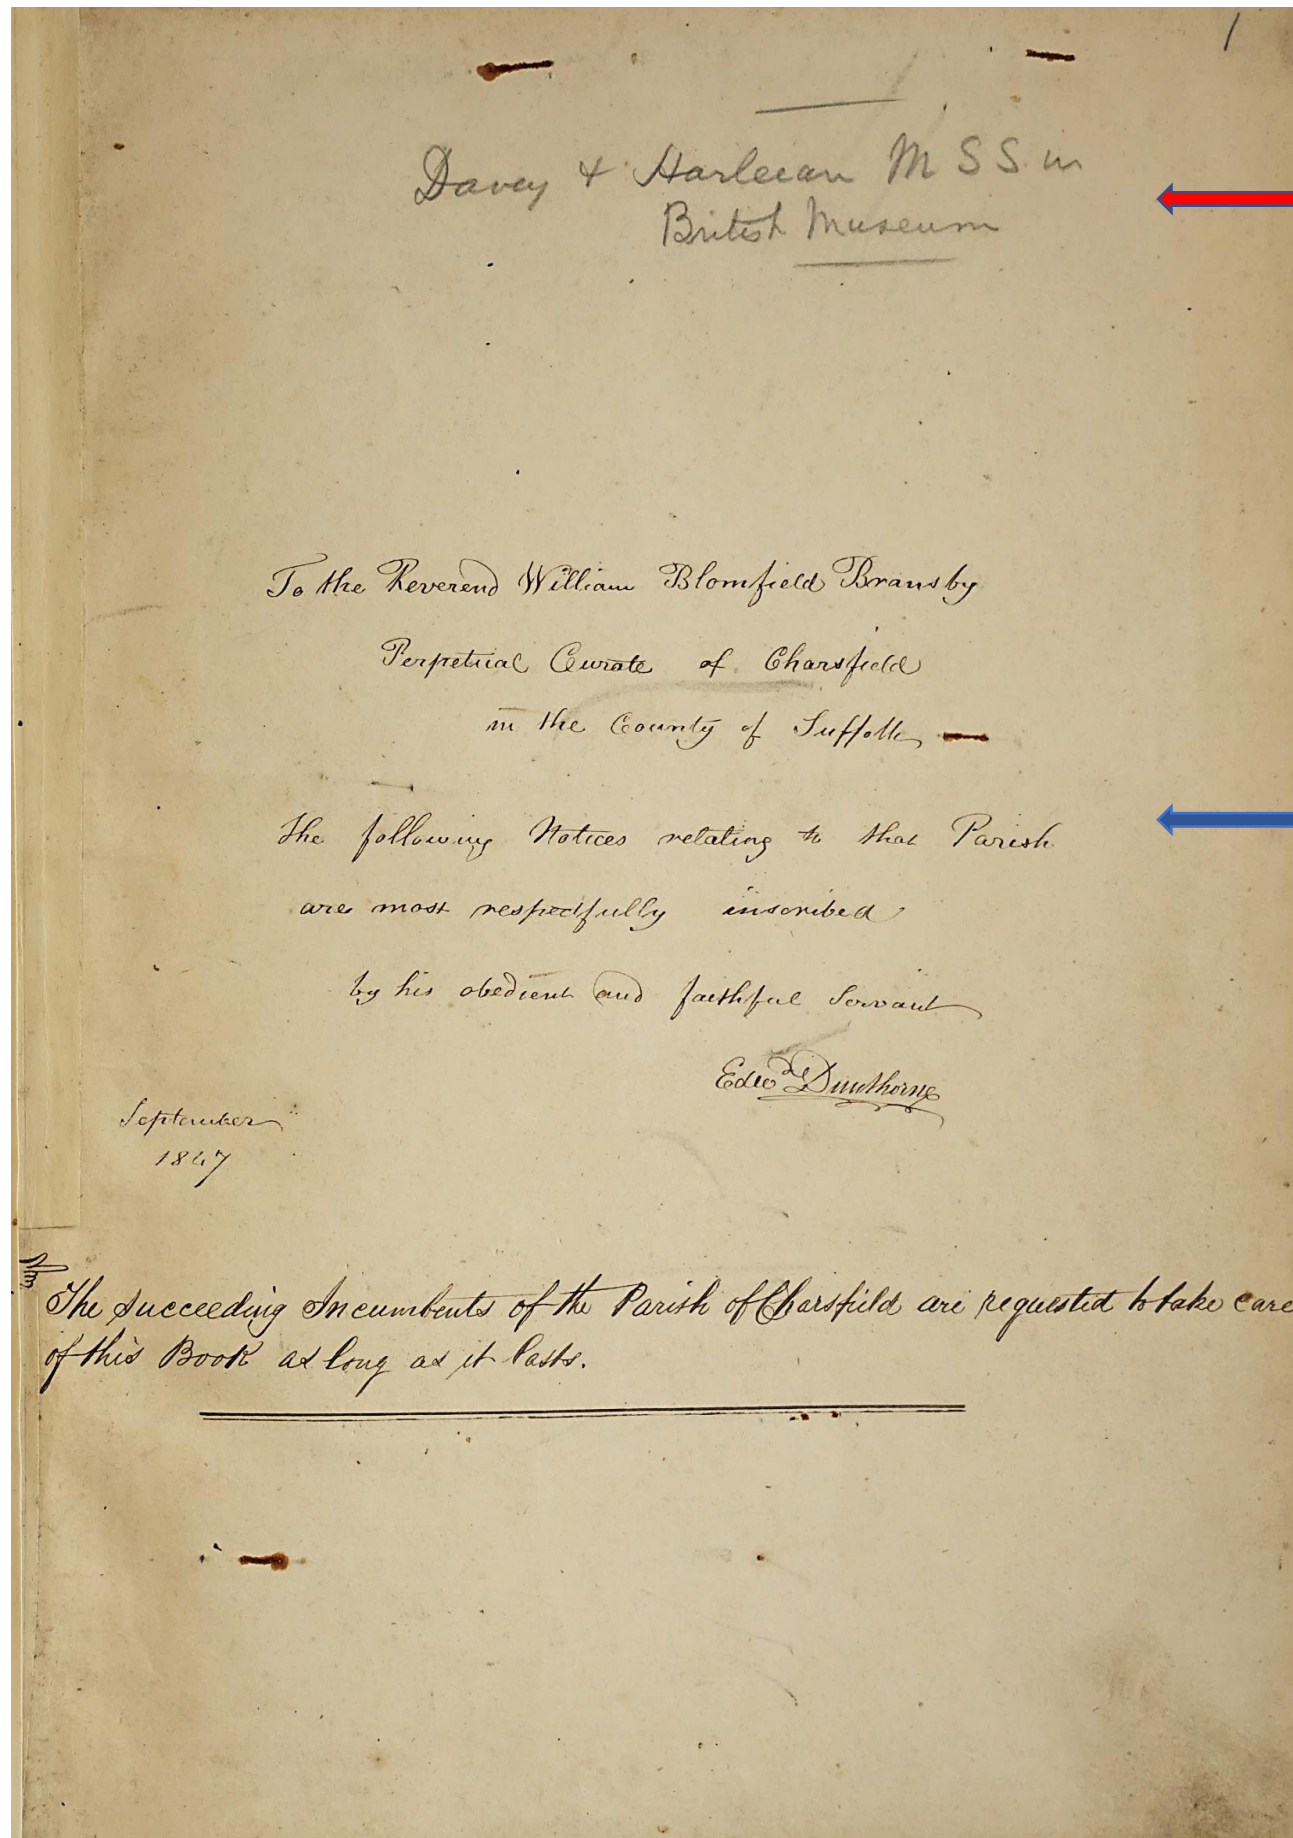 1
Davey & Harleian MSS in
British Museum
To the Reverend William Blomfield Bransby
Perpetual Curate of Charsfield
in the County of Suffolk
the following Notices relating to that Parish
are most respectfully inscribed
by his obedient and faithful Servant
Edwd Dunthorne
September
1847
The succeeding Incumbents of the Parish of Charsfield are requested to take care
of this Book as long as it lasts.